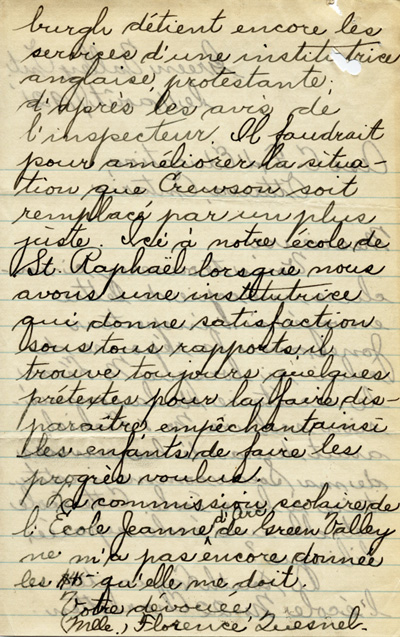 burgh détient encore les
services d'une institutrice
anglaise, protestante,
d'après les avis de
l'inspecteur. Il faudrait
pour améliorer la situa-
tion que Crewson soit
remplacé par un plus
juste. Ici à notre école de
St. Raphaël lorsque nous
avons une institutrice
qui donne satisfaction
sous tous rapports, il
trouve toujours quelques
prétextes pour la faire dis-
paraître empêchant ainsi
les enfants de faire les
progrès voulus.
La commission scolaire de
l'École Jeanne d'Arc de Green Valley
ne m'a pas encore donnée
les qu'elle me doit.
Votre dévouée,
Mlle, Florence Quesnel.